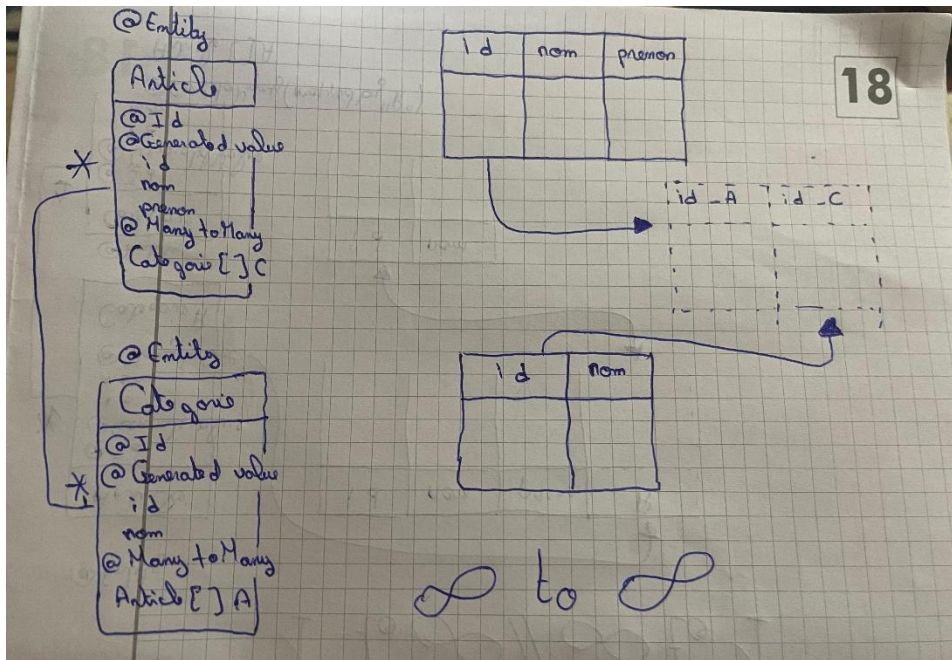 @Entity
Article
@Id
@Generated value
id
nom
prenon
@Many to Many
Categorie [ ] C
*
@Entity
Categorie
@Id
@Generated value
id
nom
@Many to Many
Article [ ] A
*
id nom prenon
18
id_A id_C
id nom
∞ to ∞